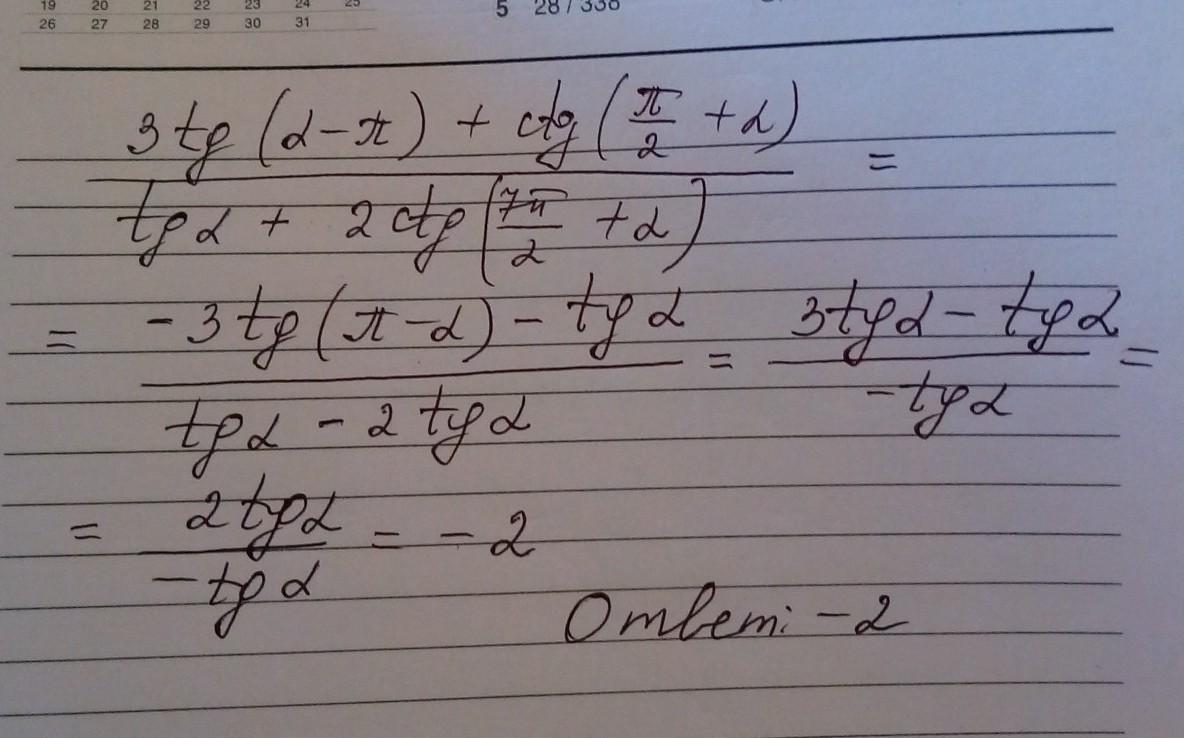 19 20 21 22 23 24 25
26 27 28 29 30 31
5 28 / 338
3 tg (α - π) + ctg (π/2 + α)
=
tg α + 2 ctg (7π/2 + α)
= -3 tg (π - α) - tg α / tg α - 2 tg α = 3 tg α - tg α / -tg α =
= 2 tg α / -tg α = -2
Ответ: -2